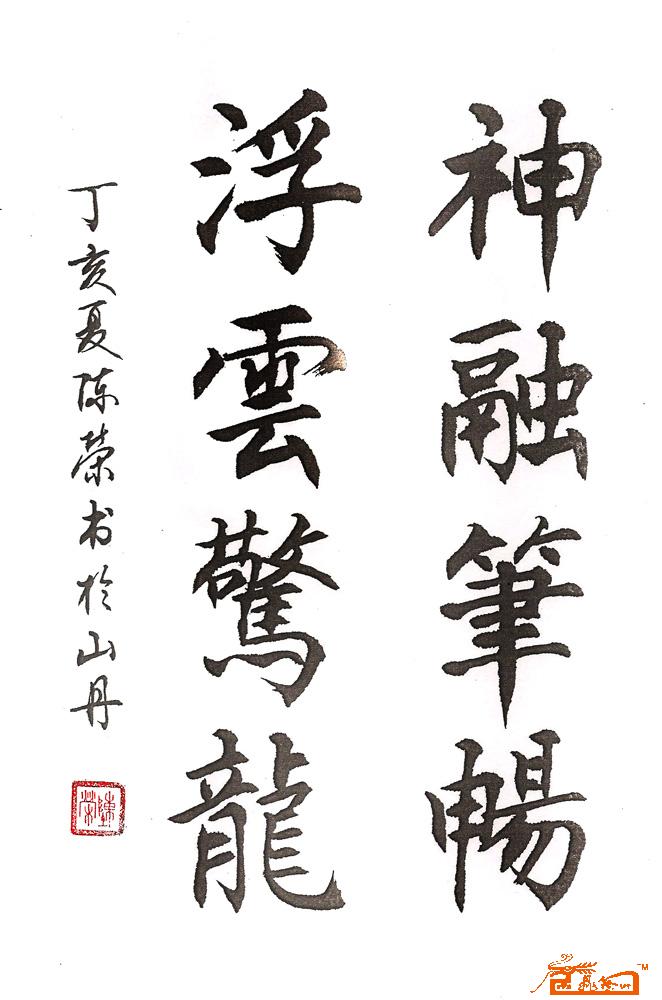 神融筆暢
浮雲驚龍
丁亥夏陈荣书於山丹
陳荣